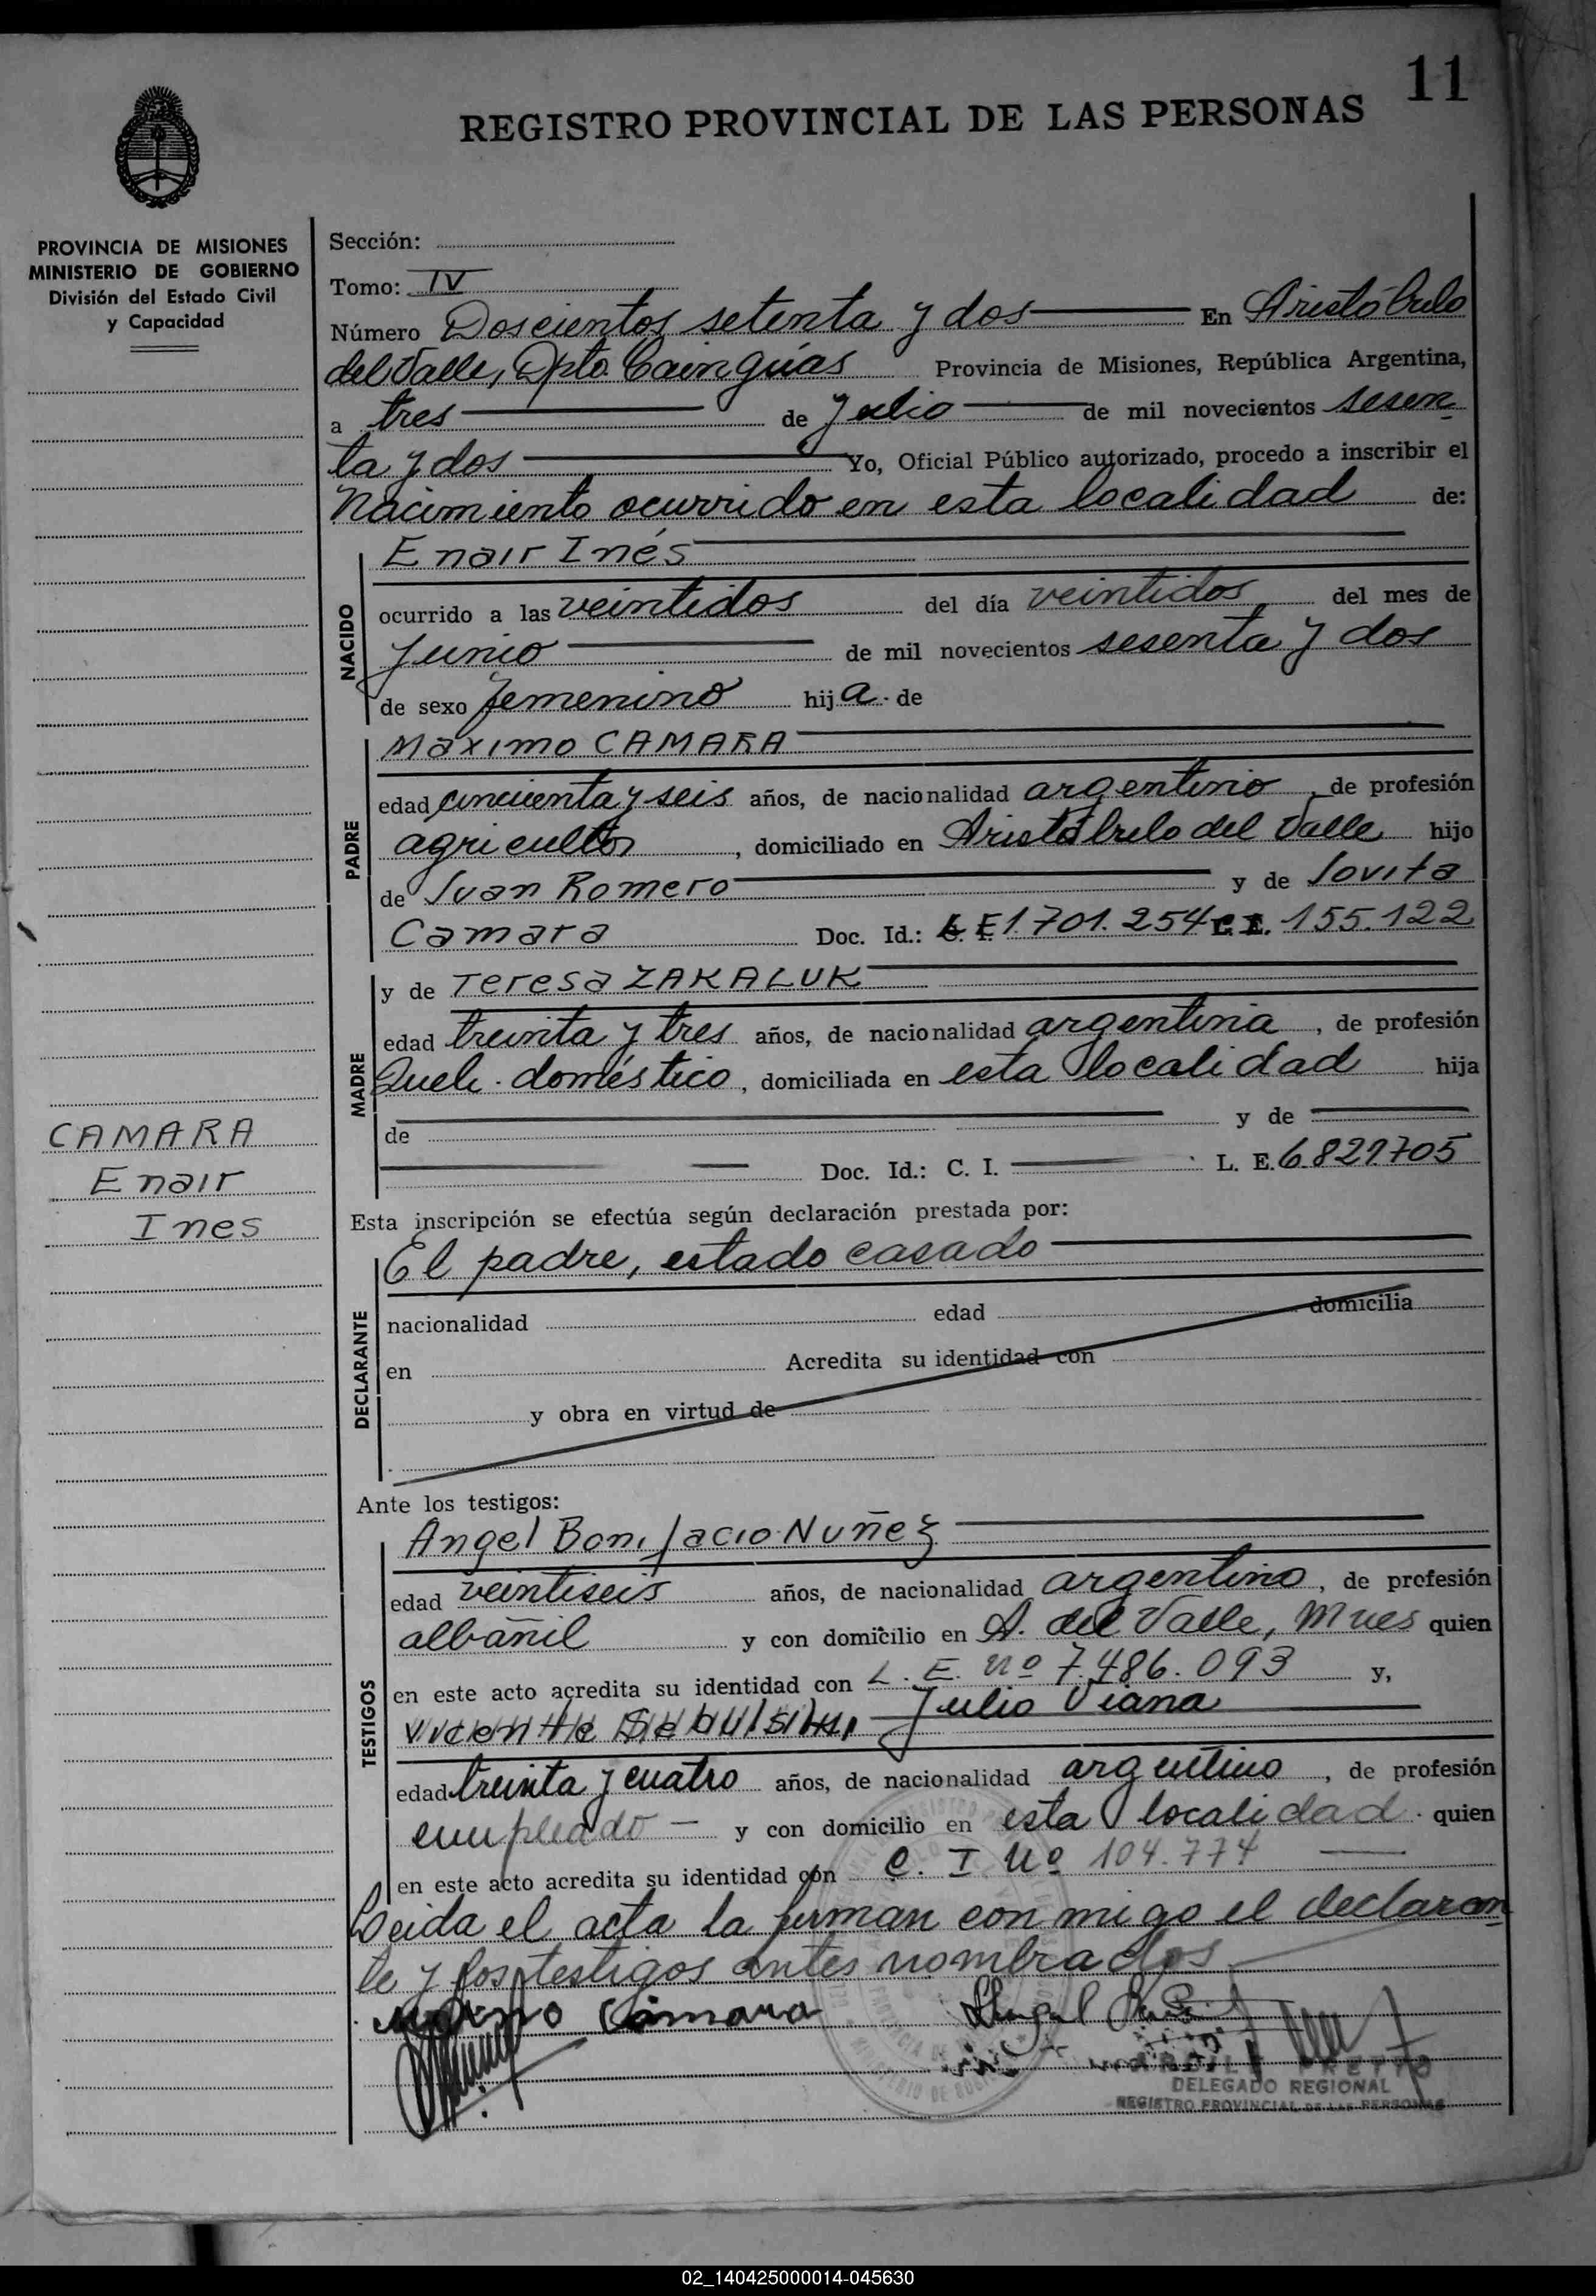 11
REGISTRO PROVINCIAL DE LAS PERSONAS
PROVINCIA DE MISIONES
MINISTERIO DE GOBIERNO
División del Estado Civil
y Capacidad
Sección:
Tomo: IV
Número Doscientos setenta y dos En Aristóbulo
del Valle, Dpto. Cainguas Provincia de Misiones, República Argentina,
a tres de julio de mil novecientos sesen
ta y dos Yo, Oficial Público autorizado, procedo a inscribir el
Nacimiento ocurrido en esta localidad de:
NACIDO
Enair Inés
ocurrido a las veintidos del día veintidos del mes de
junio de mil novecientos sesenta y dos
de sexo femenino hija de
PADRE
Maximo CAMARA
edad cincuenta y seis años, de nacionalidad argentino, de profesión
agricultor, domiciliado en Aristóbulo del Valle hijo
de Juan Romero y de Jovita
Camara Doc. Id.: L E 1.701.254 C. I. 155.122
MADRE
y de Teresa ZAKALUK
edad treinta y tres años, de nacionalidad argentina, de profesión
Queh. doméstico, domiciliada en esta localidad hija
de y de
Doc. Id.: C. I. L. E. 6.821.705
CAMARA
Enair
Ines
Esta inscripción se efectúa según declaración prestada por:
DECLARANTE
El padre, estado casado
nacionalidad edad domicilia
en Acredita su identidad con
y obra en virtud de
Ante los testigos:
TESTIGOS
Angel Bonifacio Nuñez
edad veintiseis años, de nacionalidad argentino, de profesión
albañil y con domicilio en A. del Valle, Mnes quien
en este acto acredita su identidad con L. E. Nº 7.486.093 y,
Julio Viana
edad treinta y cuatro años, de nacionalidad argentino, de profesión
empleado y con domicilio en esta localidad quien
en este acto acredita su identidad con C. I Nº 104.774
Leida el acta la firman conmigo el declaran
te y los testigos antes nombrados
Maximo Camara
DELEGADO REGIONAL
REGISTRO PROVINCIAL DE LAS PERSONAS
02_140425000014-045630